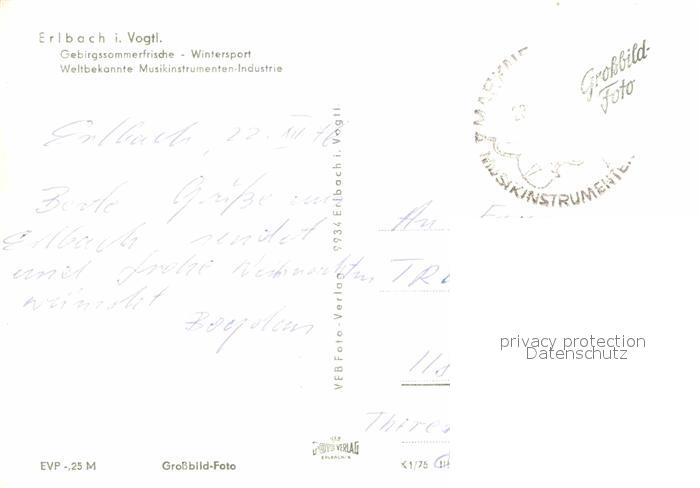 Erlbach i. Vogtl.
Gebirgssommerfrische - Wintersport
Weltbekannte Musikinstrumenten-Industrie
Großbild-
Foto
MARKNE
MUSIKINSTRUMENTE
Erlbach, 22. XII. 76
Beste Grüße aus
Erlbach sendet
und frohe Weihnachten
wünscht
Bogdan
VEB Foto-Verlag 9934 Erlbach i. Vogtl.
An
TRO
privacy protection
Datenschutz
VEB
FOTO VERLAG
ERLBACH/V.
EVP -,25 M
Großbild-Foto
K1/75